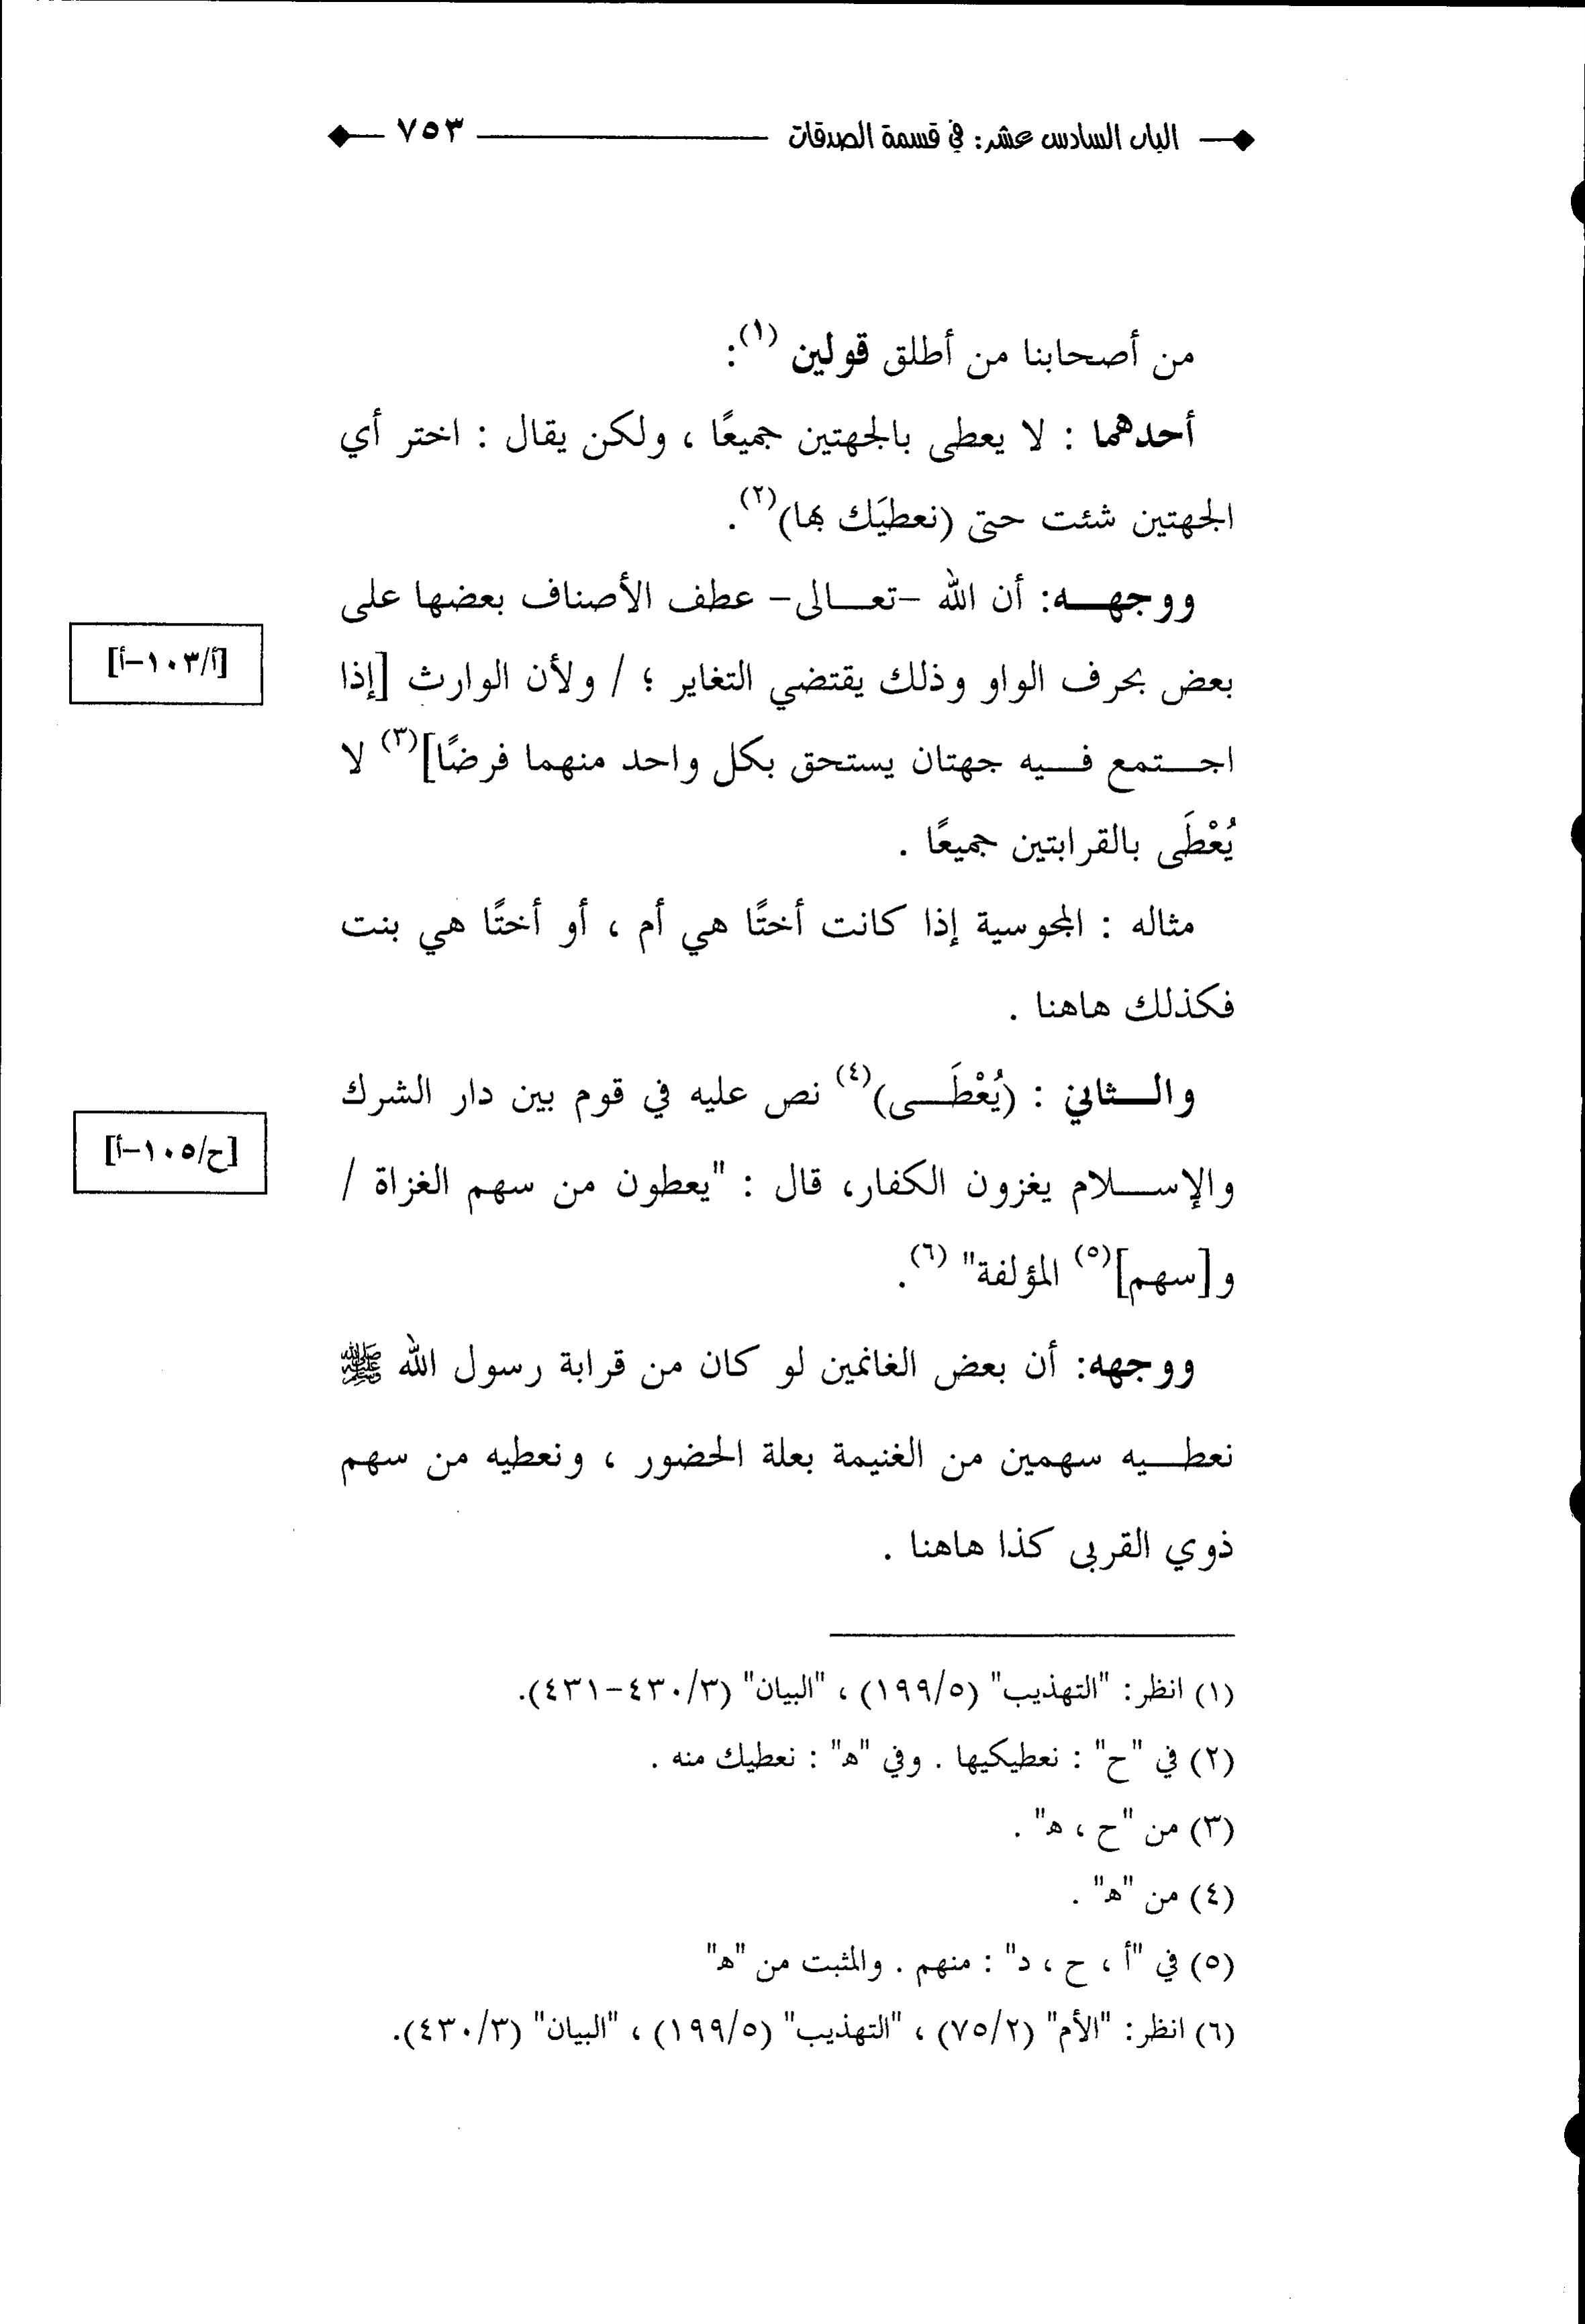 الباب السادس عشر: في قسمة الصدقات ٧٥٣
من أصحابنا من أطلق قولين (١):
أحدهما : لا يعطى بالجهتين جميعًا ، ولكن يقال : اختر أي
الجهتين شئت حتى (نعطيَك بها)(٢).
ووجهـــه: أن الله –تعـــالى– عطف الأصناف بعضها على
بعض بحرف الواو وذلك يقتضي التغاير ؛ / ولأن الوارث [إذا
[أ/١٠٣–أ]
اجـــتمع فـــيه جهتان يستحق بكل واحد منهما فرضًا](٣) لا
يُعْطَى بالقرابتين جميعًا .
مثاله : المجوسية إذا كانت أختًا هي أم ، أو أختًا هي بنت
فكذلك هاهنا .
والـــثاني : (يُعْطَـــى)(٤) نص عليه في قوم بين دار الشرك
[ح/١٠٥–أ]
والإســـلام يغزون الكفار، قال : "يعطون من سهم الغزاة /
و[سهم](٥) المؤلفة" (٦).
ووجهه: أن بعض الغانمين لو كان من قرابة رسول الله ﷺ
نعطـــيه سهمين من الغنيمة بعلة الحضور ، ونعطيه من سهم
ذوي القربى كذا هاهنا .
(١) انظر: "التهذيب" (١٩٩/٥) ، "البيان" (٤٣٠/٣–٤٣١).
(٢) في "ح" : نعطيكيها . وفي "ه" : نعطيك منه .
(٣) من "ح ، ه" .
(٤) من "ه" .
(٥) في "أ ، ح ، د" : منهم . والمثبت من "ه"
(٦) انظر: "الأم" (٧٥/٢) ، "التهذيب" (١٩٩/٥) ، "البيان" (٤٣٠/٣).